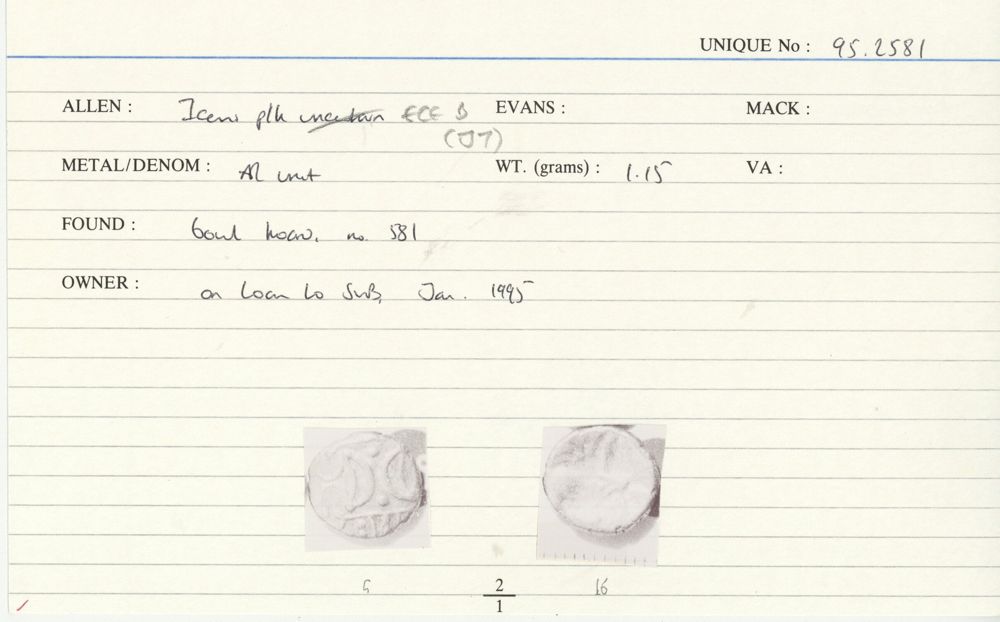 UNIQUE No : 95.2581
ALLEN : Iceni plh uncertain ECE B EVANS : MACK :
(J7)
METAL/DENOM : AR unit WT. (grams) : 1.15 VA :
FOUND : bowl hoard, no. 581
OWNER : on loan to SWB, Jan. 1995
2
1
16